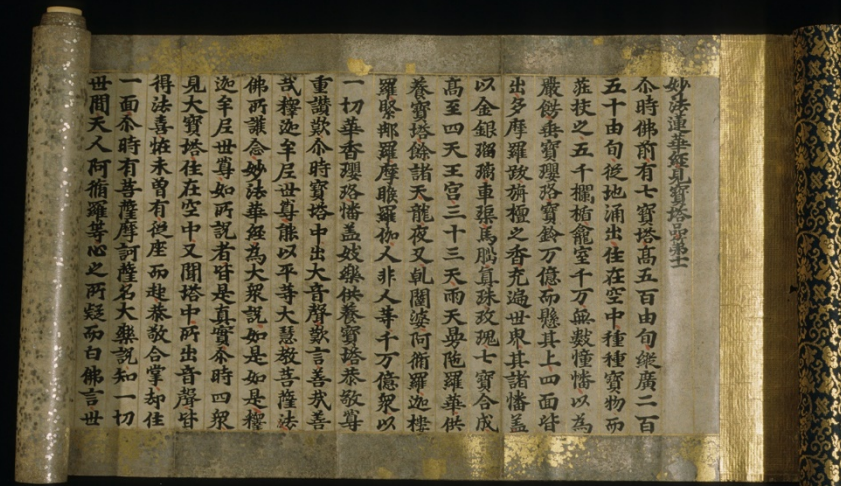 妙法蓮華經見寶塔品第十一
尒時佛前有七寶塔高五百由旬縱廣二百
五十由旬從地涌出住在空中種種寶物而
莊挍之五千欄楯龕室千万無數幢幡以為
嚴飾垂寶瓔珞寶鈴万億而懸其上四面皆
出多摩羅跋旃檀之香充遍世界其諸幡蓋
以金銀瑠璃車渠馬瑙真珠玫瑰七寶合成
高至四天王宮三十三天雨天曼陁羅華供
養寶塔餘諸天龍夜叉乹闥婆阿脩羅迦樓
羅緊那羅摩睺羅伽人非人等千万億衆以
一切華香瓔珞幡盖妓樂供養寶塔恭敬尊
重讚歎尒時寶塔中出大音聲歎言善哉善
哉釋迦牟尼世尊能以平等大慧教菩薩法
佛所護念妙法華經為大衆說如是如是釋
迦牟尼世尊如所說者皆是真實尒時四衆
見大寶塔住在空中又聞塔中所出音聲皆
得法喜恠未曾有從座而起恭敬合掌却住
一面尒時有菩薩摩訶薩名大樂說知一切
世間天人阿脩羅等心之所疑而白佛言世